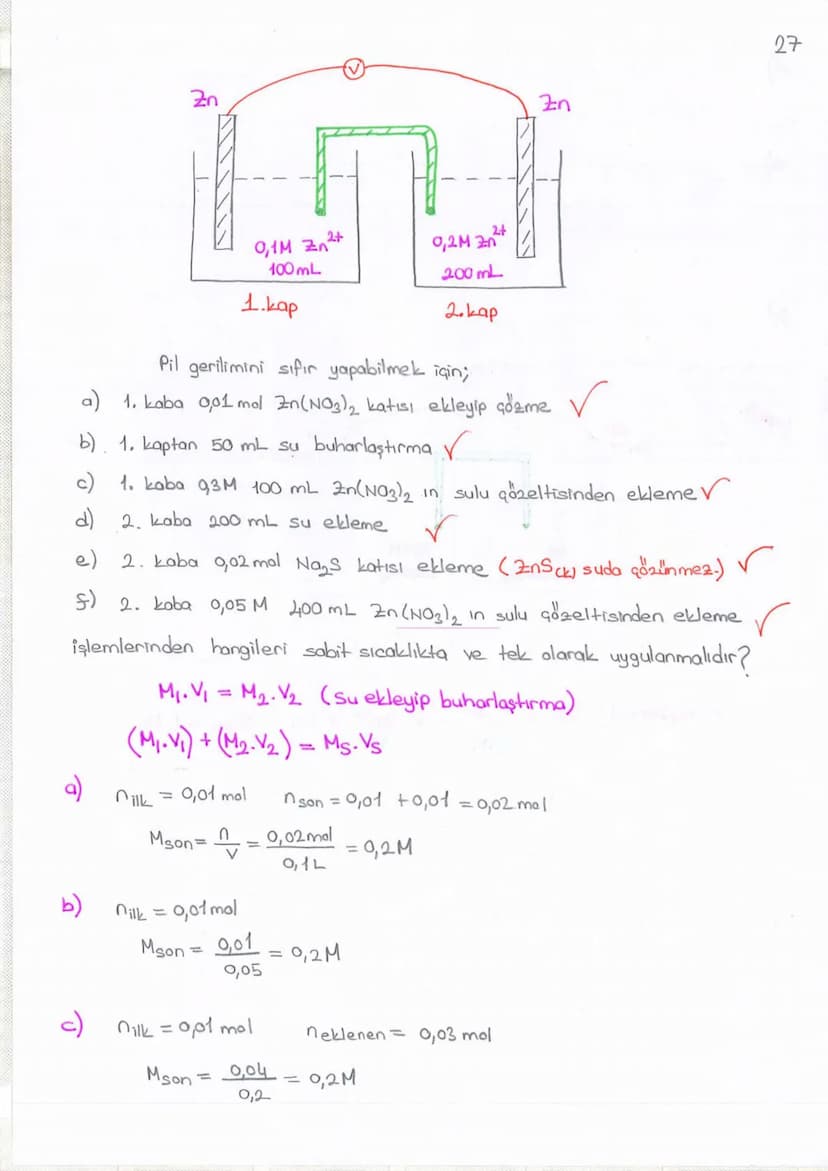 27
V
Zn
Zn
0,1M Zn²⁺
100 mL
0,2M Zn²⁺
200 mL
1.kap
2.kap
Pil gerilimini sıfır yapabilmek için;
a) 1. kaba 0,01 mol Zn(NO₃)₂ katısı ekleyip çözme ✓
b) 1. kaptan 50 mL su buharlaştırma ✓
c) 1. kaba 0,3M 100 mL Zn(NO₃)₂ ın sulu çözeltisinden ekleme ✓
d) 2. kaba 200 mL su ekleme ✓
e) 2. kaba 0,02 mol Na₂S katısı ekleme (ZnS(k) suda çözünmez.) ✓
f) 2. kaba 0,05 M 400 mL Zn(NO₃)₂ ın sulu çözeltisinden ekleme ✓
işlemlerinden hangileri sabit sıcaklıkta ve tek olarak uygulanmalıdır?
M₁.V₁ = M₂.V₂ (su ekleyip buharlaştırma)
(M₁.V₁) + (M₂.V₂) = Ms.Vs
a) nilk = 0,01 mol nson = 0,01 + 0,01 = 0,02 mol
Mson = n/V = 0,02mol/0,1L = 0,2M
b) nilk = 0,01 mol
Mson = 0,01/0,05 = 0,2M
c) nilk = 0,01 mol neklenen = 0,03 mol
Mson = 0,04/0,2 = 0,2M